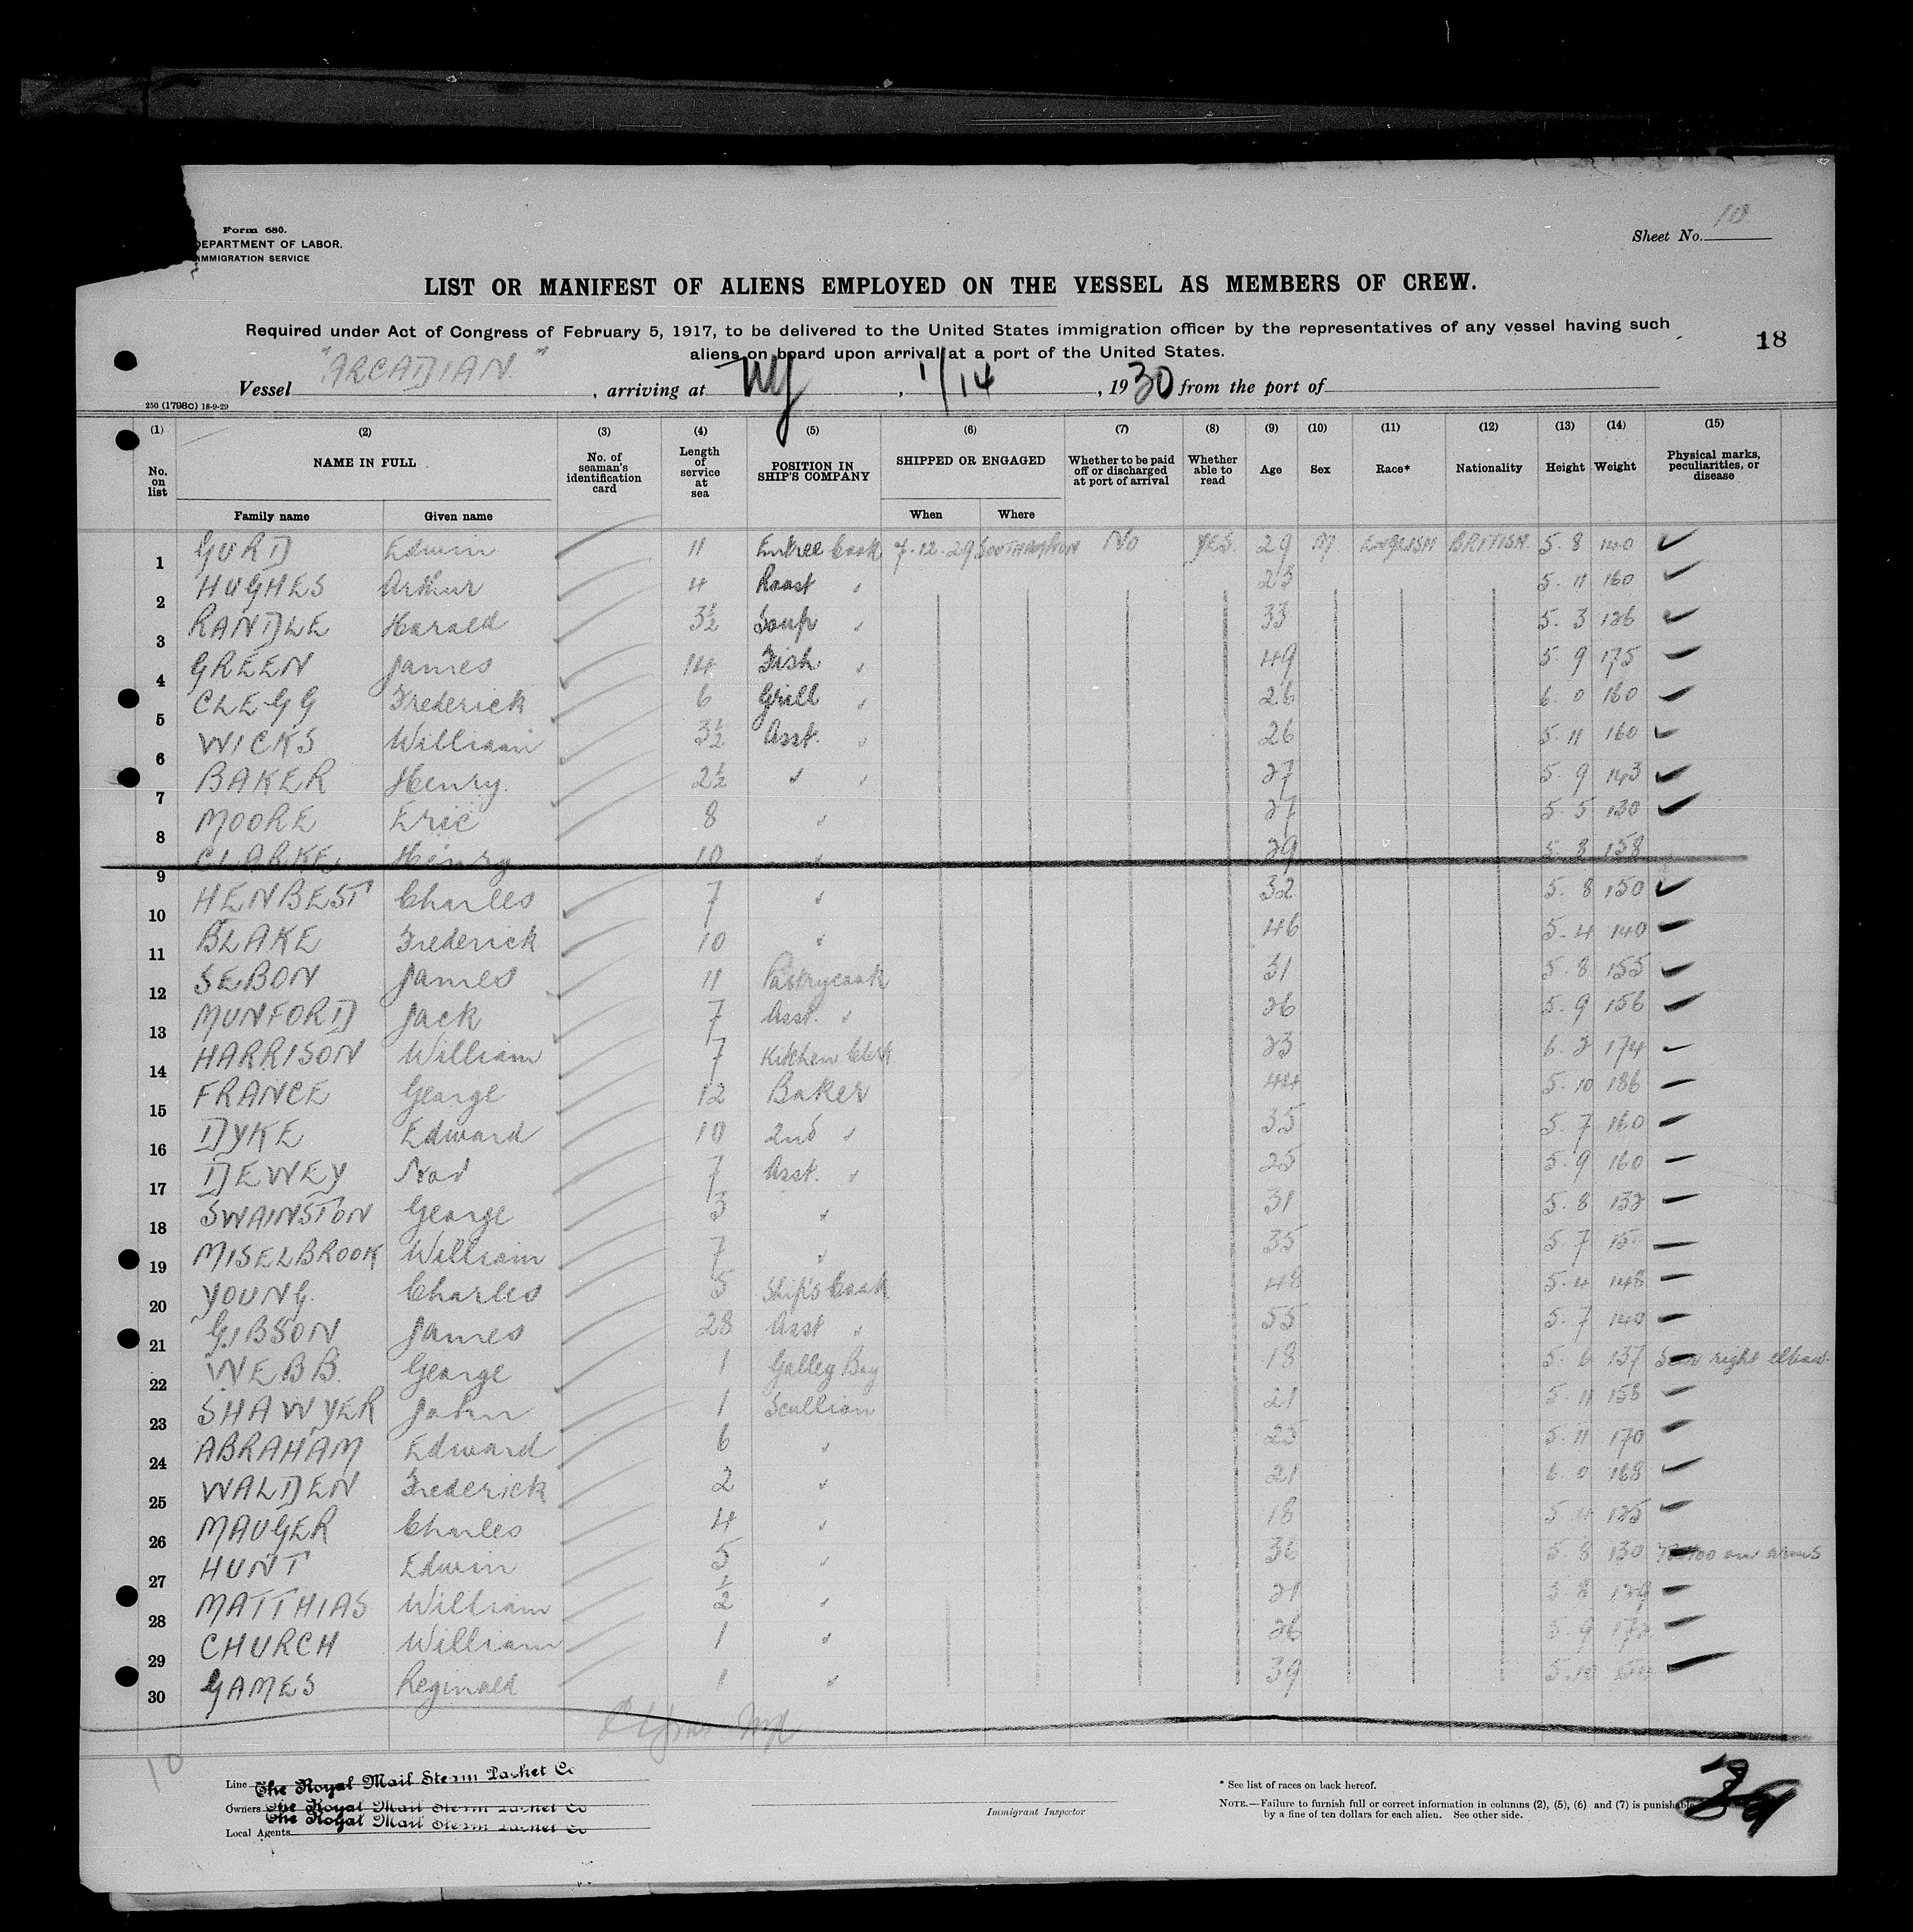 Form 680.
DEPARTMENT OF LABOR.
IMMIGRATION SERVICE
Sheet No. 10
LIST OR MANIFEST OF ALIENS EMPLOYED ON THE VESSEL AS MEMBERS OF CREW.
Required under Act of Congress of February 5, 1917, to be delivered to the United States immigration officer by the representatives of any vessel having such
aliens on board upon arrival at a port of the United States.
18
Vessel "ARCADIAN", arriving at NY, 1/14, 1930 from the port of
250 (1798c) 18-9-29
(1) (2) (3) (4) (5) (6) (7) (8) (9) (10) (11) (12) (13) (14) (15)
No. on list NAME IN FULL No. of seaman's identification card Length of service at sea POSITION IN SHIP'S COMPANY SHIPPED OR ENGAGED Whether to be paid off or discharged at port of arrival Whether able to read Age Sex Race* Nationality Height Weight Physical marks, peculiarities, or disease
Family name Given name When Where
1 GURD Edwin 11 Entree Cook 7.12.29 SOUTHAMPTON NO YES. 29 M ENGLISH BRITISH 5. 8 140
2 HUGHES Arthur 4 Roast " 23 5. 11 160
3 RANDLE Harold 3½ Soup " 33 5. 3 126
4 GREEN James 14 Fish " 49 5. 9 175
5 CLEGG Frederick 6 Grill " 26 6. 0 160
6 WICKS William 3½ Asst. " 26 5. 11 160
7 BAKER Henry. 2½ " " 27 5. 9 143
8 MOORE Eric 8 " 27 5. 5 130
9 CLARKE Henry 10 " 29 5. 8 158
10 HENBEST Charles 7 " 32 5. 8 150
11 BLAKE Frederick 10 " 46 5. 4 140
12 SEBON James 11 Pastrycook 31 5. 8 155
13 MUNFORD Jack 7 Asst. " 26 5. 9 156
14 HARRISON William 7 Kitchen Clerk 23 6. 2 174
15 FRANCE George 12 Baker 44 5. 10 186
16 DYKE Edward 10 2nd " 35 5. 7 160
17 DEWEY 7 Asst. " 25 5. 9 160
18 SWAINSTON George 3 " 31 5. 8 132
19 MISELBROOK William 7 " 35 5. 7
20 YOUNG. Charles 5 Ship's Cook 48 5. 4 148
21 GIBSON James 28 Asst " 55 5. 7 140
22 WEBB. George 1 Galley Boy 18 5. 6 137 Scar right elbow.
23 SHAWYER John 1 Scullion 21 5. 11 158
24 ABRAHAM Edward 6 " 25 5. 11 170
25 WALDEN Frederick 2 " 21 6. 0 168
26 MAUGER Charles 4 " 18 125
27 HUNT Edwin 5 " 36 5. 8 130 Tattoo on arms
28 MATTHIAS William ½ " 21 5. 8 129
29 CHURCH William 1 " 26 5. 9 172
30 GAMES Reginald 1 " 39 5. 10
10
Line The Royal Mail Steam Packet Co
Owners The Royal Mail Steam Packet Co
Local Agents The Royal Mail Steam Packet Co
Immigrant Inspector
* See list of races on back hereof.
NOTE.—Failure to furnish full or correct information in columns (2), (5), (6) and (7) is punishable
by a fine of ten dollars for each alien. See other side.
29